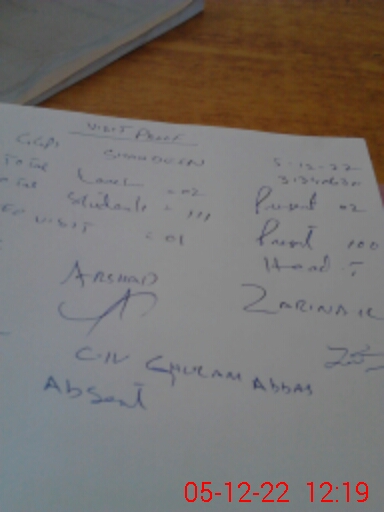 VISIT PROOF
GGPS SHAHDEEN 5-12-22
TOTAL = 02 Present 02
Students = 111 Present 100
VISIT = 01 Head T
ARSHAD ZARINA
C-IV GHULAM ABBAS
Absent
05-12-22 12:19